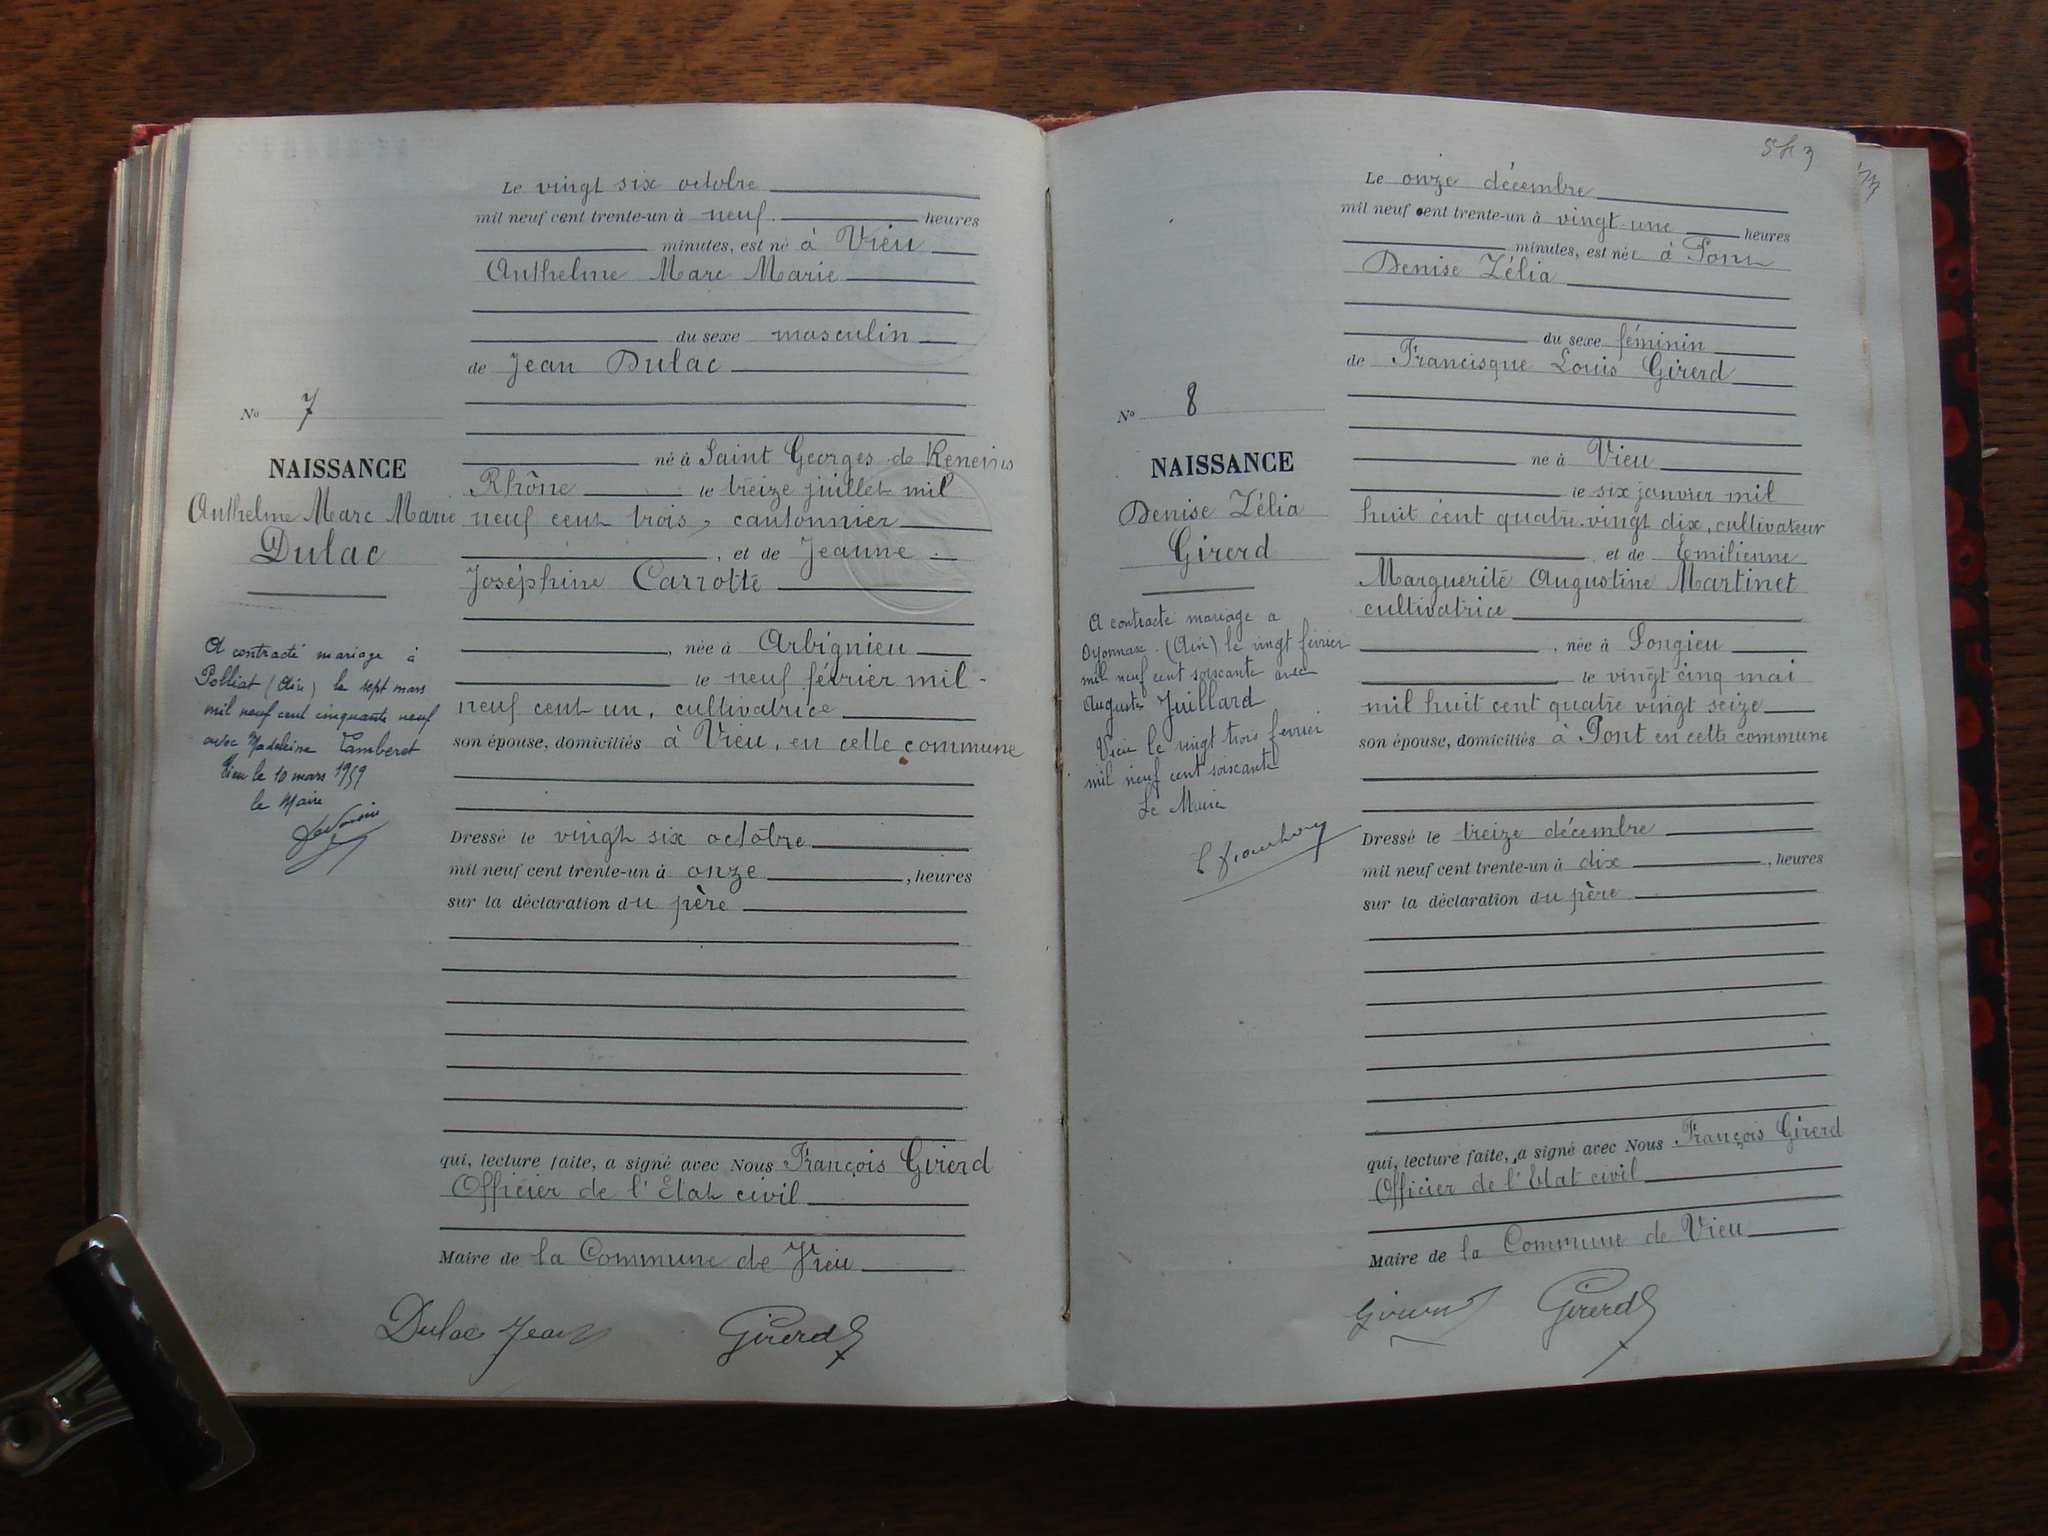 Le vingt six octobre
mil neuf cent trente-un à neuf heures
minutes, est né à Vieu
Anthelme Marc Marie
du sexe masculin
de Jean Dulac
No 7
NAISSANCE
Anthelme Marc Marie
Dulac
A contracté mariage à
Polliat (Ain) le sept mars
mil neuf cent cinquante neuf
avec Madeleine Tamberet
Vieu le 10 mars 1959
le Maire
né à Saint Georges de Reneins
Rhône le treize juillet mil
neuf cent trois, cantonnier
, et de Jeanne
Joséphine Carrotte
, née à Arbignieu
le neuf février mil
neuf cent un, cultivatrice
son épouse, domiciliés à Vieu, en cette commune
Dressé le vingt six octobre
mil neuf cent trente-un à onze , heures
sur la déclaration du père
qui, lecture faite, a signé avec Nous François Girerd
Officier de l'Etat civil
Maire de la Commune de Vieu
Dulac Jean Girerd
Le onze décembre
mil neuf cent trente-un à vingt-une heures
minutes, est née à Pont
Denise Zélia
du sexe féminin
de Francisque Louis Girerd
No 8
NAISSANCE
Denise Zélia
Girerd
A contracté mariage a
Oyonnax (Ain) le vingt février
mil neuf cent soixante avec
Auguste Juillard
Vieu le vingt trois fevrier
mil neuf cent soixante
Le Maire
né à Vieu
le six janvier mil
huit cent quatre-vingt dix, cultivateur
et de Emilienne
Marguerite Augustine Martinet
cultivatrice
, née à Songieu
le vingt cinq mai
mil huit cent quatre vingt seize
son épouse, domiciliés à Pont en cette commune
Dressé le treize décembre
mil neuf cent trente-un à dix , heures
sur la déclaration du père
qui, lecture faite, a signé avec Nous François Girerd
Officier de l'Etat civil
Maire de la Commune de Vieu
Girerd Girerd